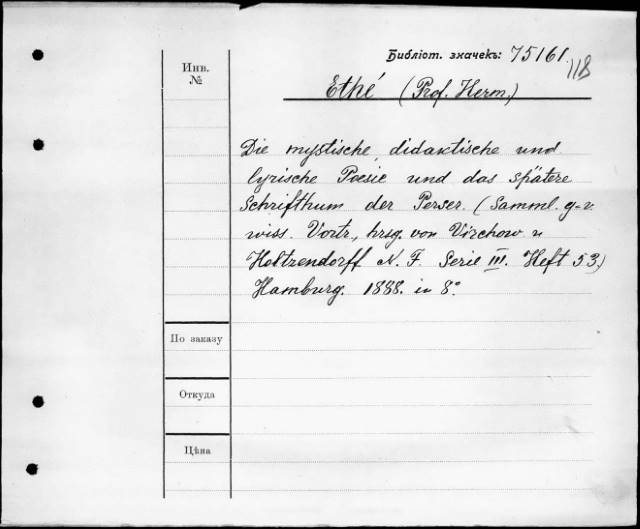 Библіот. значекъ: 75161.
118
Инв.
№
Ethé (Prof. Herm.)
Die mystische, didaktische und
lyrische Poesie und das spätere
Schriftthum der Perser. (Samml. g-v.
wiss. Vortr., hrsg. von Virchow u
Holtzendorff N. F. Serie III. Heft 53.)
Hamburg. 1888. in 8º
По заказу
Откуда
Цѣна